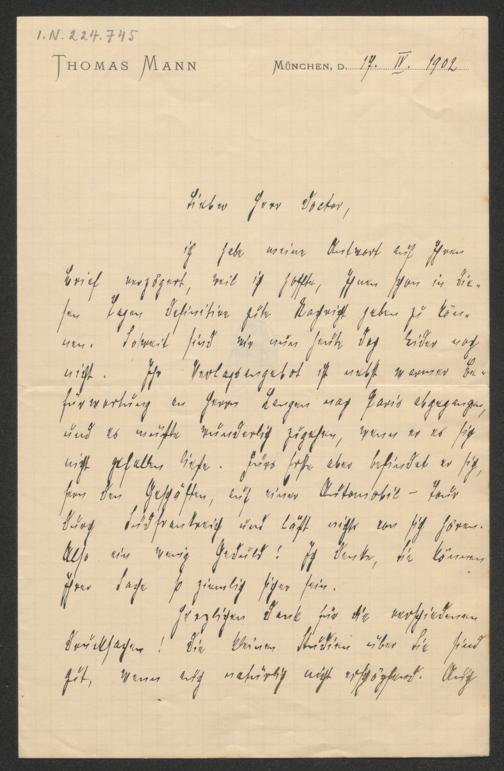 I.N. 224.745
THOMAS MANN
MÜNCHEN, D. 17. IV. 1902
Lieber Herr Doctor,
ich habe meine Antwort auf Ihren
Brief verzögert, weil ich hoffte, Ihnen schon in die-
sen Tagen definitive gute Nachricht geben zu kön-
nen. Soweit sind wir nun heute doch leider noch
nicht. Ihr Verlagsangebot ist nebst warmer Be-
fürwortung an Herrn Langen nach Paris abgegangen,
und es müßte wunderlich zugehen, wenn er es sich
nicht gefallen ließe. Fürs Erste aber befindet er sich,
fern den Geschäften, auf einer Automobil-Tour
durch Südfrankreich und läßt nichts von sich hören.
Also ein wenig Geduld! Ich denke, Sie können
Ihrer Sache so ziemlich sicher sein.
Herzlichen Dank für die verschiedenen
Drucksachen! Die kleinen Studien über Sie sind
gut, wenn auch natürlich nicht erschöpfend. Auch